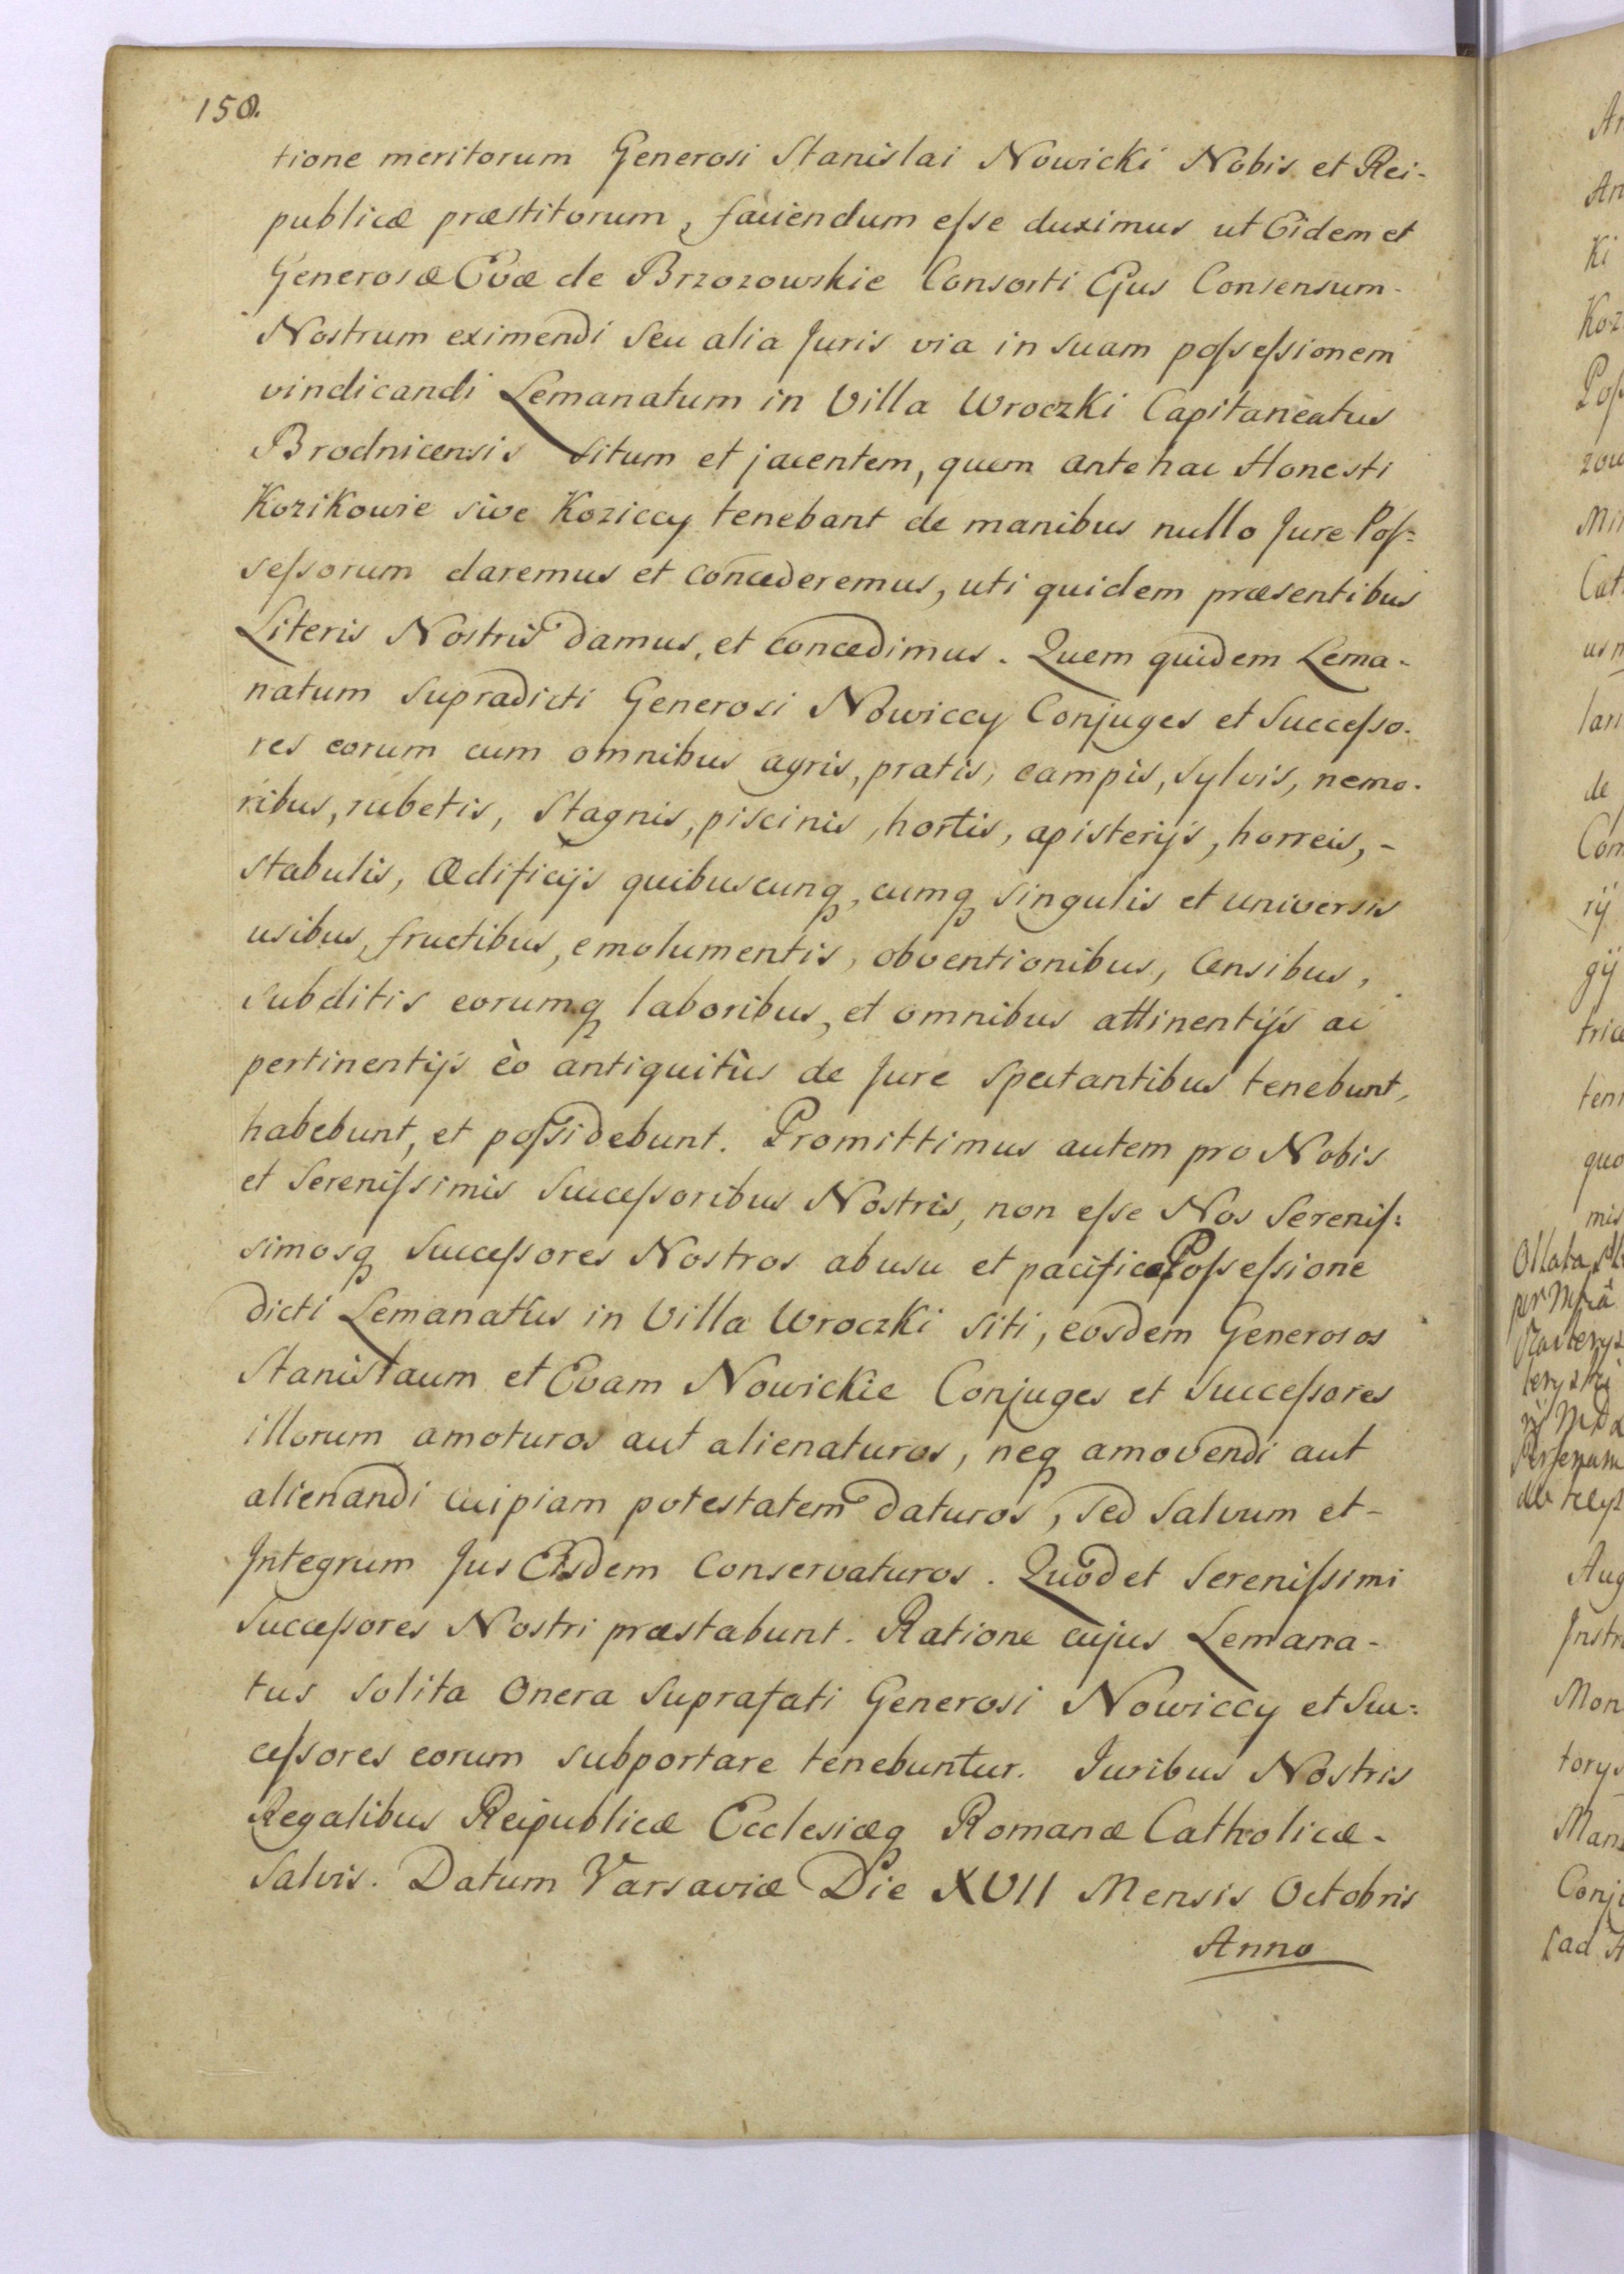 158.
tione meritorum Generosi Stanislai Nowicki Nobis et Rei-
publicæ præstitorum, faciendum eſse duximus ut Eidem et
Generosæ Evæ de Brzozowskie Consorti Ejus Consensum-
Nostrum eximendi seu alia Juris via in suam poſseſsionem
vindicandi Lemanatum in Villa Wroczki Capitaneatus
Brodnicensis situm et jacentem, quem antehac Honesti
Kozikowie sive Koziccy tenebant de manibus nullo Jure Poſ:
seſsorum daremus et concederemus, uti quidem præsentibus
Literis Nostris damus, et concedimus. Quem quidem Lema-
natum Supradicti Generosi Nowiccy Conjuges et Succeſso-
res eorum cum omnibus agris, pratis, campis, sylvis, nemo-
ribus, rubetis, stagnis, piscinis, hortis, apisterijs, horreis,-
stabulis, ædificijs quibuscunq, cumq singulis et universis
usibus, fructibus, emolumentis, obventionibus, censibus,
subditis eorumq laboribus, et omnibus attinentijs ac
pertinentijs èo antiquitùs de Jure spectantibus tenebunt,
habebunt, et poſsidebunt. Promittimus autem pro Nobis
et Sereniſsimis Succeſsoribus Nostris, non eſse Nos Sereniſ:
simosq Succeſsores Nostros ab usu et pacifica Poſseſsione
dicti Lemanatûs in Villa Wroczki siti, eosdem Generosos
Stanislaum et Evam Nowickie Conjuges et Succeſsores
illorum amoturos aut alienaturos, neq amovendi aut
alienandi cuipiam potestatem daturos, sed salvum et-
Integrum Jus Eisdem conservaturos. Quod et Sereniſsimi
Succeſsores Nostri præstabunt. Ratione cujus Lemana-
tus solita Onera suprafati Generosi Nowiccy et Suc:
ceſsores eorum subportare tenebuntur. Juribus Nostris
Regalibus Reipublicæ Ecclesiæq Romanæ Catholicæ-
Salvis. Datum Varsaviæ Die XVII Mensis Octobris
Anno